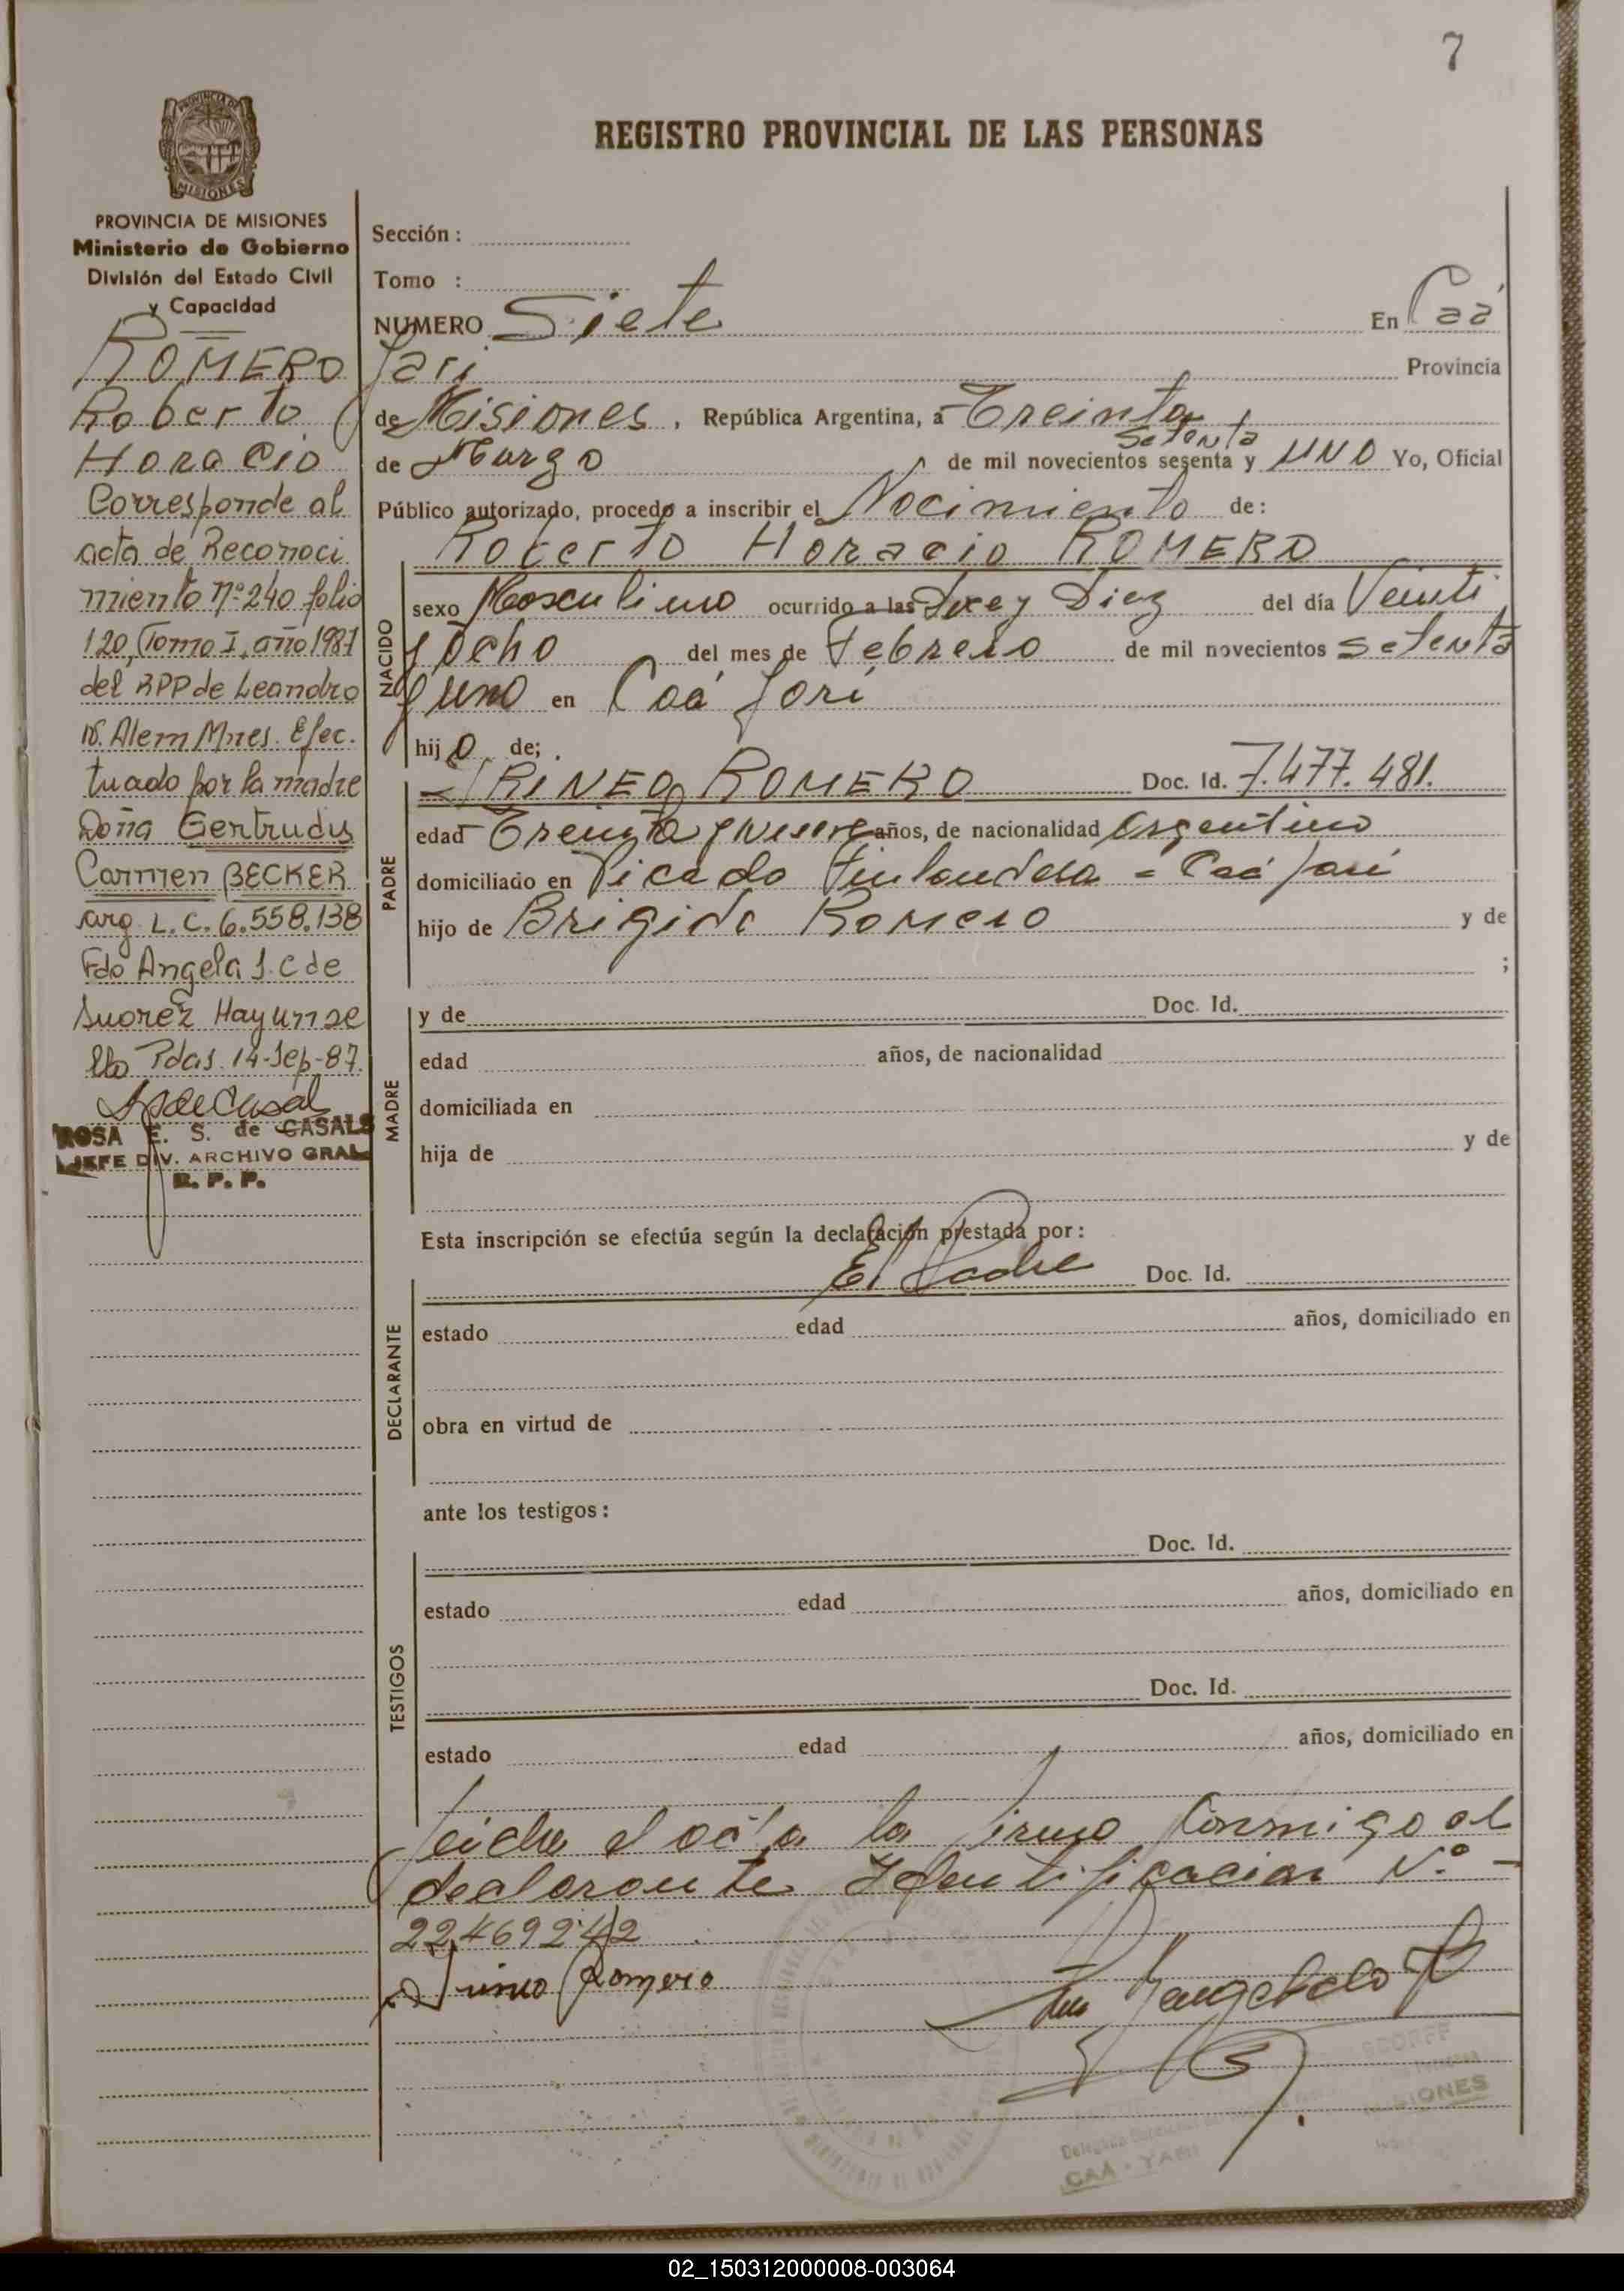 7
PROVINCIA DE
MISIONES
REGISTRO PROVINCIAL DE LAS PERSONAS
PROVINCIA DE MISIONES
Ministerio de Gobierno
División del Estado Civil
y Capacidad
ROMERO
Roberto
Horacio
Corresponde al
acta de Reconoci
miento nº 240 folio
120, Tomo I, año 1987
del RPP de Leandro
N. Alem Mnes. Efec.
tuado por la madre
Doña Gertrudis
Carmen BECKER
arg. L.C. 6.558.138
Fdo Angela S. C de
Suarez Hay un se
llo Pdas. 14-Sep-87.
ROSA E. S. de CASALS
JEFE DIV. ARCHIVO GRAL
R. P. P.
Sección :
Tomo :
NUMERO Siete En Caá
Yari Provincia
de Misiones, República Argentina, a Treinta
setenta
de Marzo de mil novecientos sesenta y UNO Yo, Oficial
Público autorizado, procedo a inscribir el Nacimiento de:
Roberto Horacio ROMERO
NACIDO
sexo Masculino ocurrido a las Diez del día Veinti
y ocho del mes de Febrero de mil novecientos setenta
y uno en Caá Yarí
hijo de;
PADRE
IRINEO ROMERO Doc. Id. 7.477.481.
edad Treinta y nueve años, de nacionalidad Argentino
domiciliado en Picada Finlandesa - Caá Yarí
hijo de Brigida Romero y de
;
MADRE
y de Doc. Id.
edad años, de nacionalidad
domiciliada en
hija de y de
Esta inscripción se efectúa según la declaración prestada por:
DECLARANTE
El Padre Doc. Id.
estado edad años, domiciliado en
obra en virtud de
ante los testigos:
TESTIGOS
Doc. Id.
estado edad años, domiciliado en
Doc. Id.
estado edad años, domiciliado en
Leida el acta la firma conmigo el
declarante Identificacion Nº -
22469242
Romero
MISIONES
CAA - YARI
02_150312000008-003064